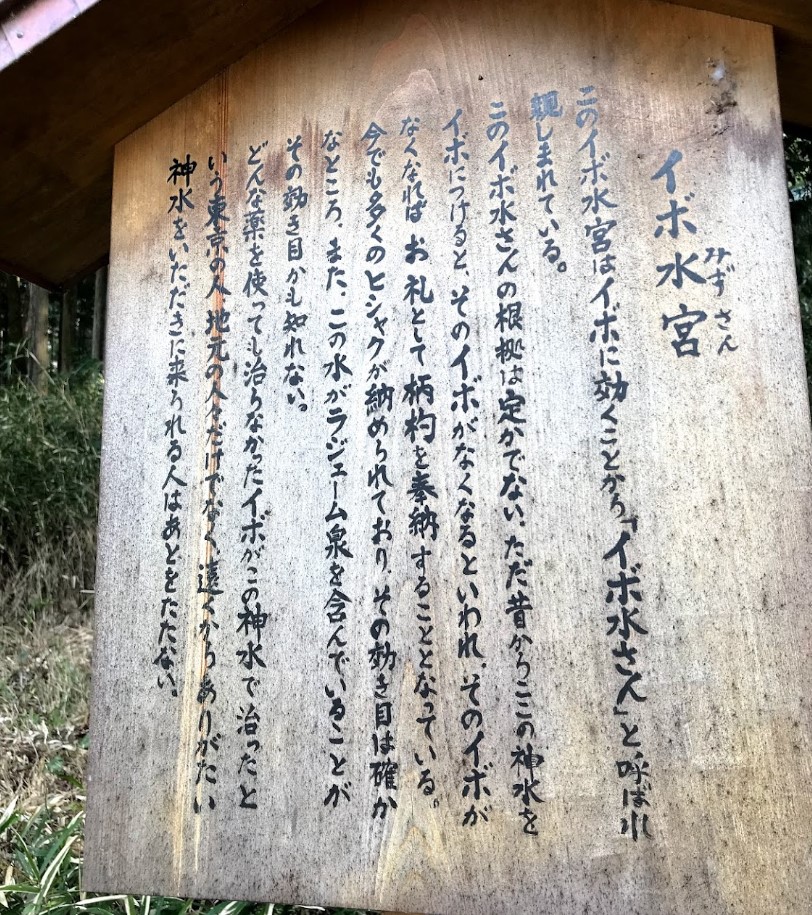 イボ水宮
みずさん
このイボ水宮はイボに効くことから「イボ水さん」と呼ばれ
親しまれている。
このイボ水さんの根拠は定かでない。ただ昔からここの神水を
イボにつけると、そのイボがなくなるといわれ。そのイボが
なくなれば お礼として柄杓を奉納することとなっている。
今でも多くのヒシャクが納められており、その効き目は確か
なところ、また、この水がラジューム泉を含んでいることが
その効き目かも知れない。
どんな薬を使っても治らなかったイボがこの神水で治ったと
いう東京の人、地元の人々だけでなく遠くからありがたい
神水をいただきに来られる人はあとをたたない。